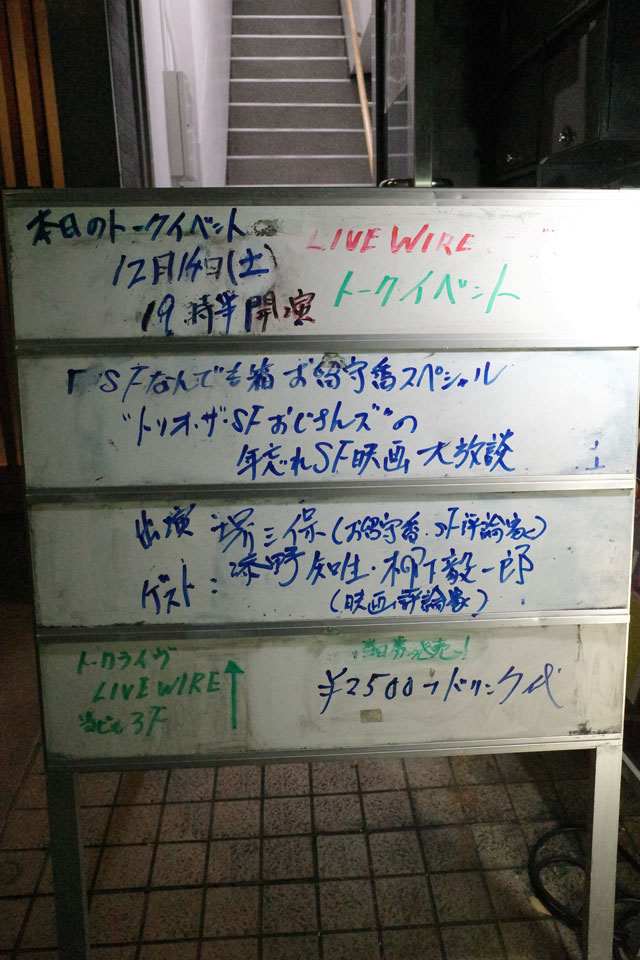 本日のトークイベント
12月14日(土)
19時半開演
LIVE WIRE
トークイベント
「SFなんでも箱 お留守番スペシャル
"トリオ・ザ・SFおじさんズ"の
年忘れSF映画大放談
出演 堺三保(お留守番・SF評論家)
ゲスト: 添野知生・柳下毅一郎
(映画評論家)
トークライヴ
LIVE WIRE
当ビル3F
当日券発売!
¥2500→ドリンク代